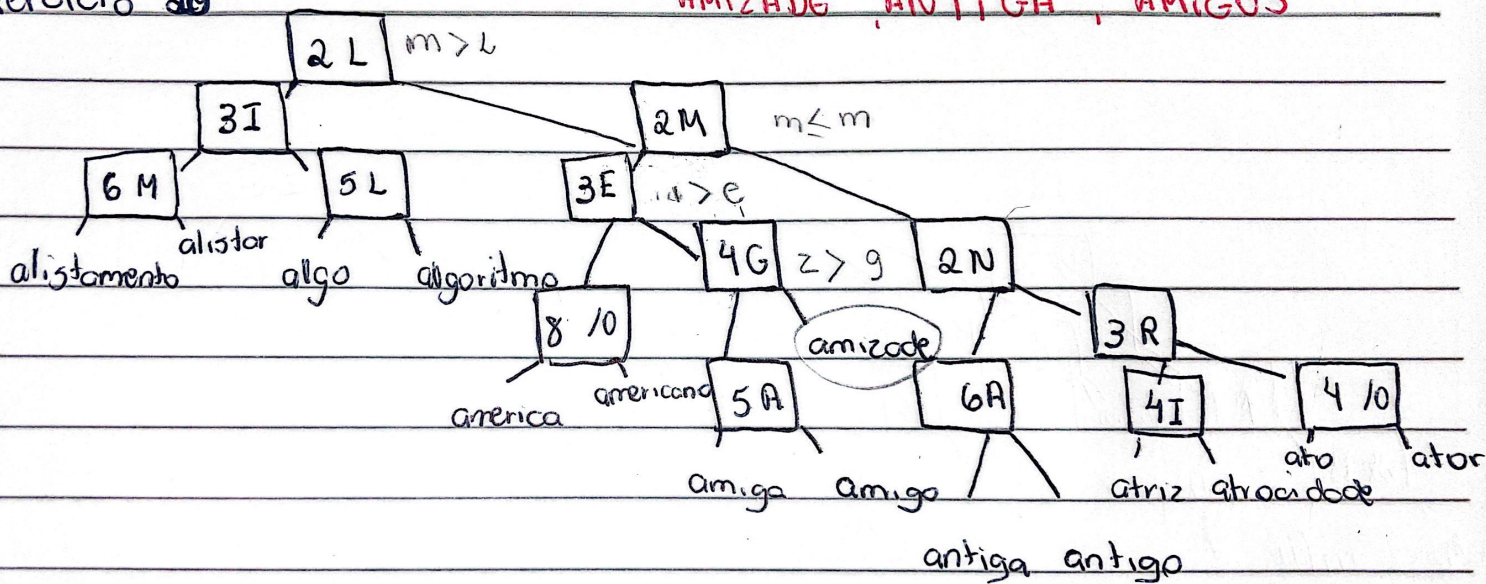 AMIZADE, ANTIGA, AMIGOS
2 L m > L
3I 2M m ≤ m
6 M 5 L 3E > e
alistamento alistar algo algoritmo 4G z > g 2N
8 \0 amizade 3 R
america americano 5 A 6A 4I 4 \0
amiga amigo atriz atrocidade ato ator
antiga antigo